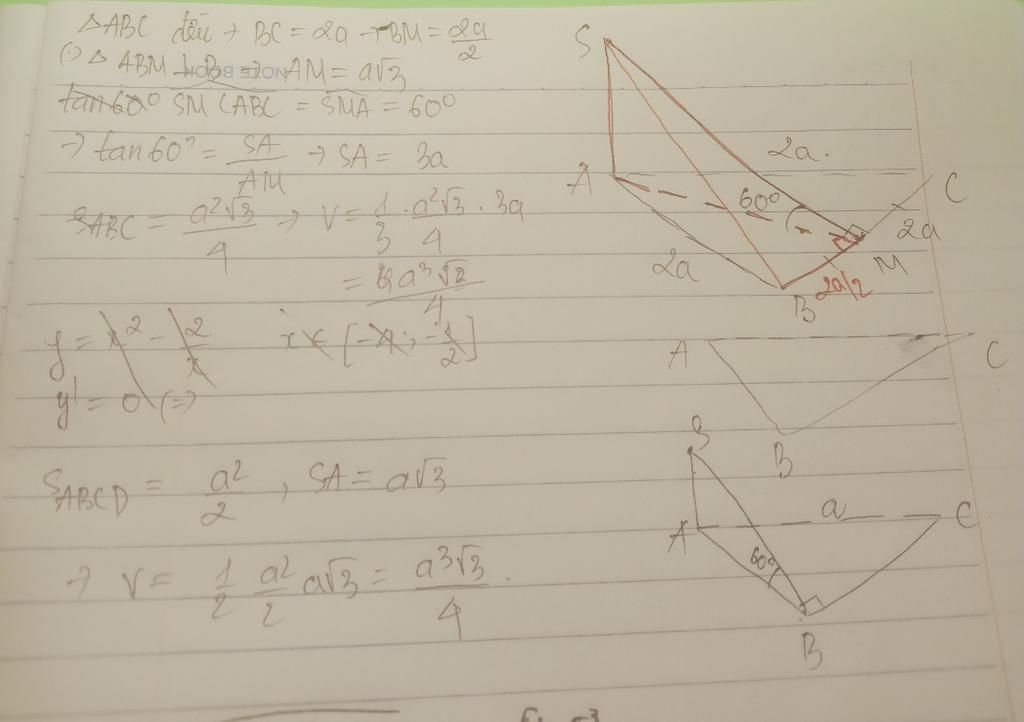 △ABC đều + BC = 2a → BM = 2a/2
(·) △ ABM ⊥ B → AM = a√3
tan60° SM (ABC = SMA = 60°
→ tan60° = SA/AM → SA = 3a
S_ABC = a²√3/4 → V = 1/3 · a²√3/4 · 3a
y = x² - 2/x x ∈ [-4; -1/2]
y' = 0 (=>
S_ABCD = a²/2 , SA = a√3
→ V = 1/2 a²/2 a√3 = a³√3/4 .
S
2a.
A
60°
C
2a
M
2a
2a/2
B
A
C
B
S
a
A
C
60°
B